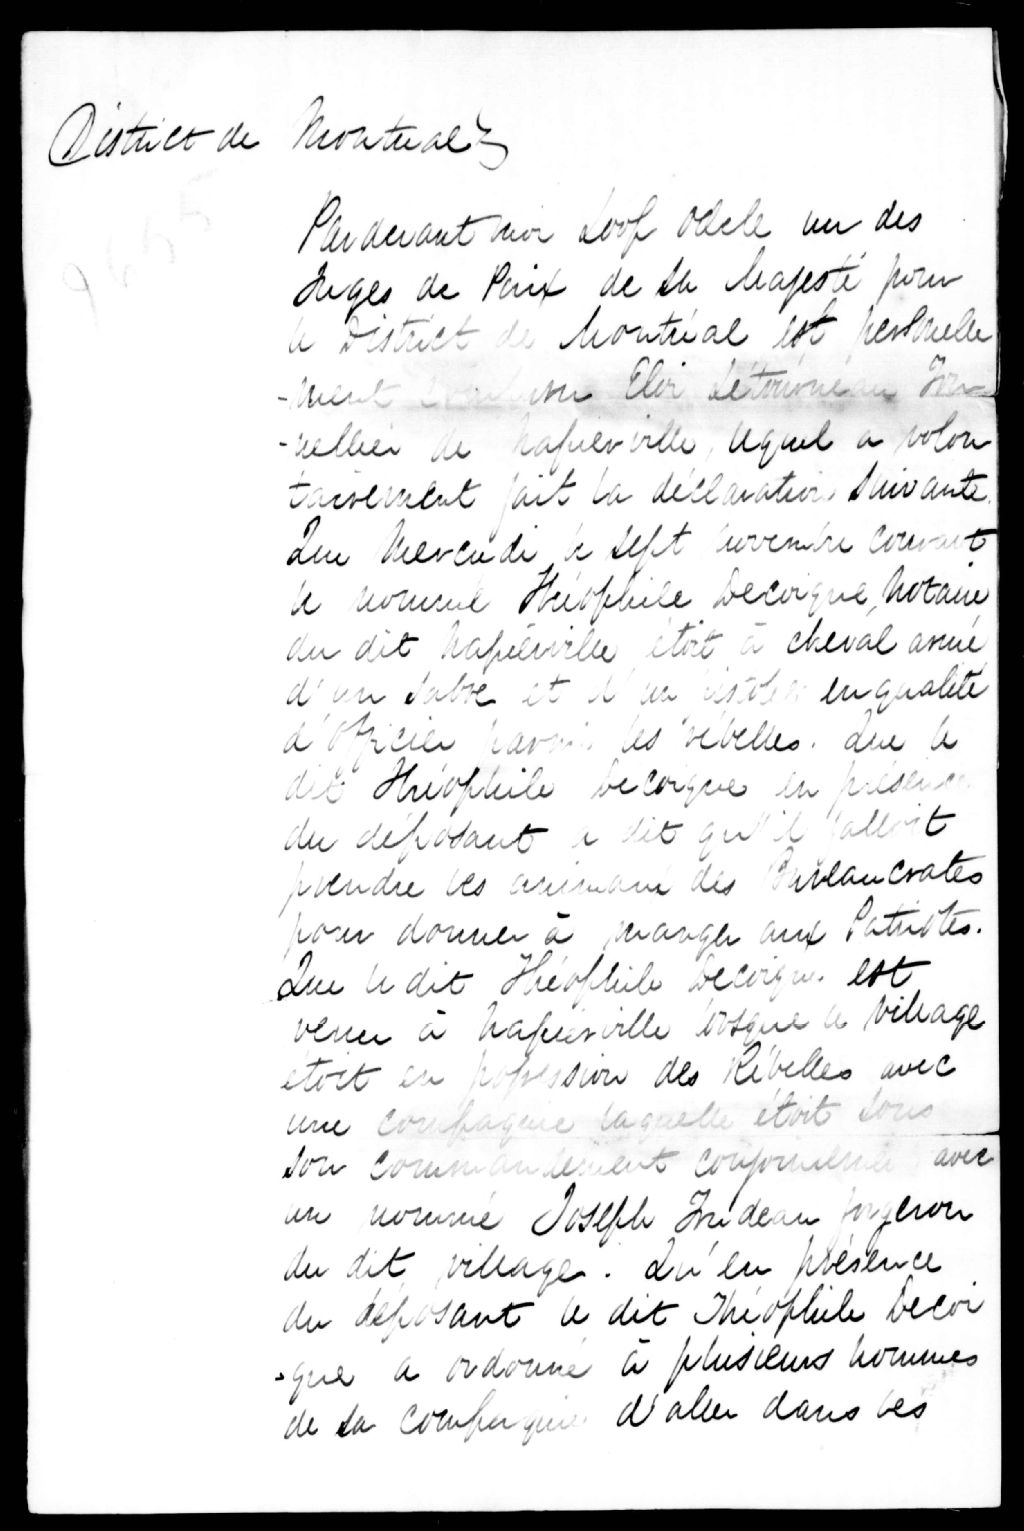 District de Montreal
9655
Pardevant moi Loop Odele un des
Juges de Paix de Sa Majesté pour
le District de Montréal est personnelle
-ment Eloi Létourneau Ton-
-nellier de Napierville, lequel a volon
tairement fait la déclaration suivante.
Que Mercredi le sept novembre courant
le nommé Théophile Decoigne, Notaire
du dit Napierville étoit à cheval armé
d'un sabre et d'un pistolet en qualité
d'officier parmi les rébelles. Que le
dit Théophile Decoigne en présence
du déposant a dit qu'il falloit
prendre les animaux des Bureaucrates
pour donner à manger aux Patriotes.
Que le dit Théophile Decoigne est
venu à Napierville lorsque le village
étoit en possession des Rébelles avec
une compagnie laquelle étoit sous
son commandement conjointement avec
un nommé Joseph Trudeau forgeron
du dit village. Qu'en présence
du déposant le dit Théophile Decoi
-gne a ordonné à plusieurs hommes
de sa compagnie d'aller dans les